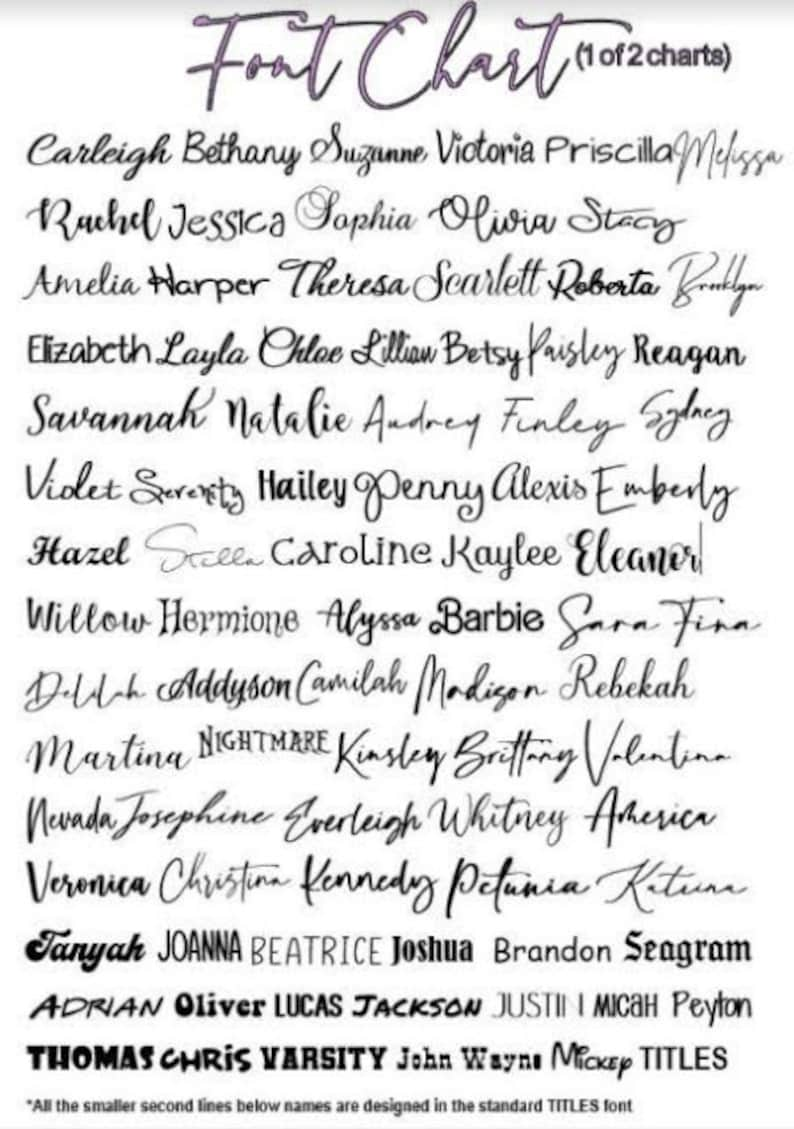 Font Chart (1 of 2 charts)
Carleigh Bethany Suzanne Victoria Priscilla Melissa
Rachel Jessica Sophia Olivia Stacy
Amelia Harper Theresa Scarlett Roberta Brooklyn
Elizabeth Layla Chloe Lillian Betsy Paisley Reagan
Savannah Natalie Audrey Finley Sydney
Violet Serenity Hailey Penny Alexis Emberly
Hazel Stella Caroline Kaylee Eleanor
Willow Hermione Alyssa Barbie Sara Tina
Delilah Addyson Camilah Madison Rebekah
Martina NIGHTMARE Kinsley Brittany Valentina
Nevada Josephine Everleigh Whitney America
Veronica Christina Kennedy Petunia Katrina
Tanyah JOANNA BEATRICE Joshua Brandon Seagram
ADRIAN Oliver LUCAS JACKSON JUSTIN MICAH Peyton
THOMAS CHRIS VARSITY John Wayne Mickey TITLES
*All the smaller second lines below names are designed in the standard TITLES font